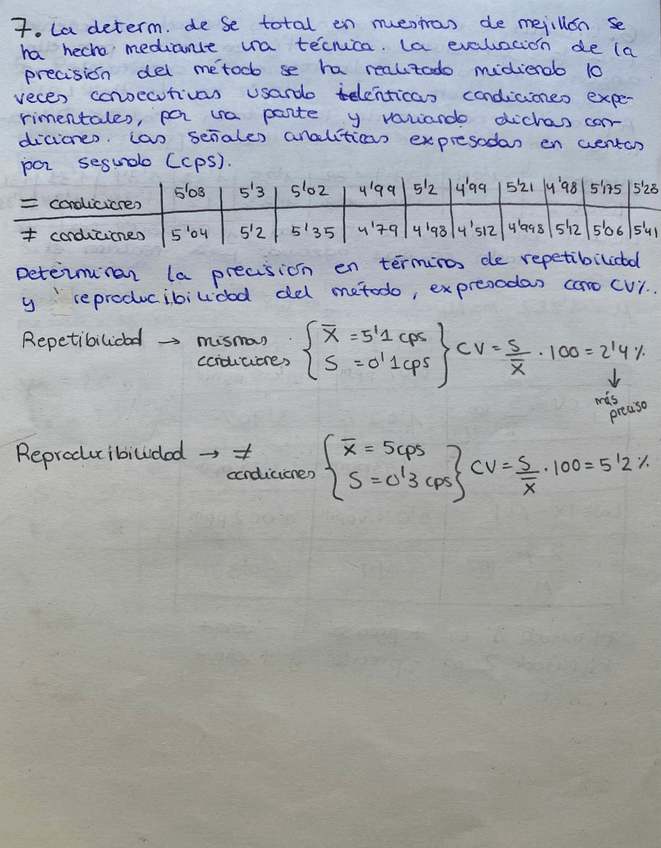 7. La determ. de Se total en muestras de mejillón se
ha hecho mediante una técnica. La evaluación de la
precisión del método se ha realizado midiendo 10
veces consecutivas usando idénticas condiciones expe-
rimentales, por una parte y variando dichas con-
diciones. Las señales analíticas expresadas en cuentas
por segundo (cps).
= condiciones | 5'03 | 5'3 | 5'02 | 4'99 | 5'2 | 4'99 | 5'21 | 4'98 | 5'175 | 5'28
≠ condiciones | 5'04 | 5'2 | 5'35 | 4'79 | 4'98 | 4'512 | 4'998 | 5'12 | 5'06 | 5'41
Determinar la precisión en términos de repetibilidad
y reproducibilidad del método, expresadas como CV%.
Repetibilidad → mismas condiciones { X̄ = 5'1 cps
S = 0'1 cps } CV = S/X̄ · 100 = 2'4 %
↓
más preciso
Reproducibilidad → ≠ condiciones { X̄ = 5 cps
S = 0'3 cps } CV = S/X̄ · 100 = 5'2 %